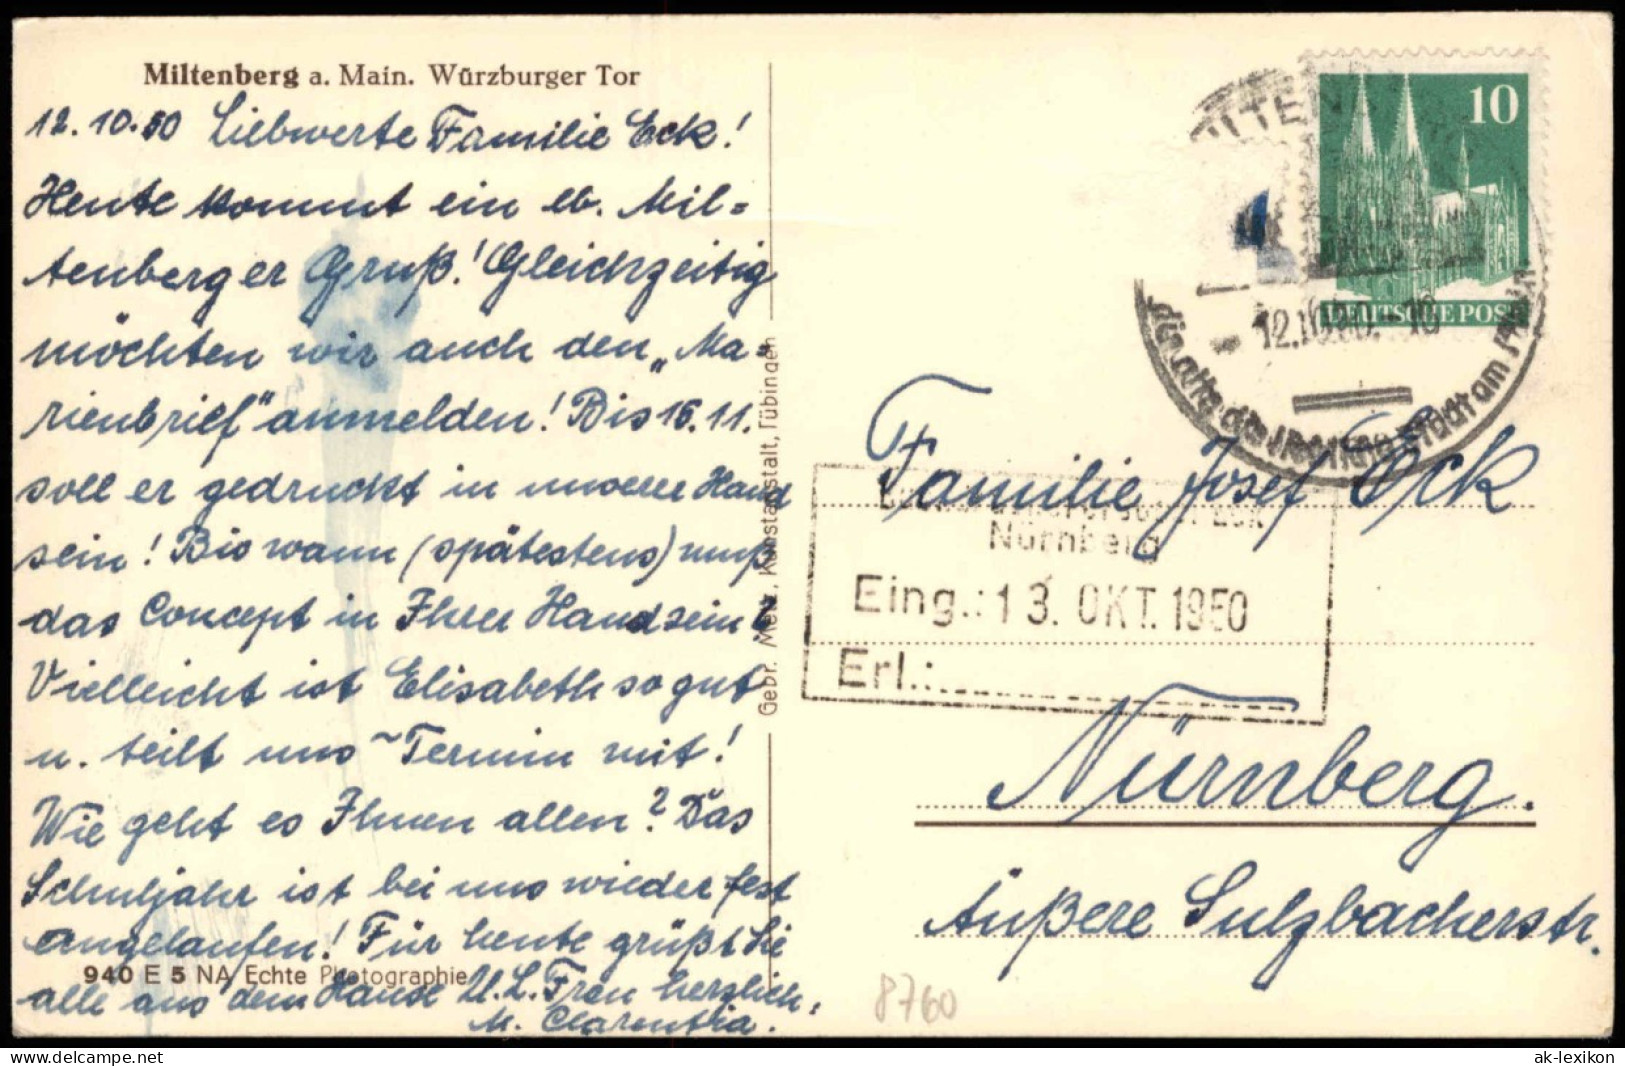 Miltenberg a. Main. Würzburger Tor
12.10.50 Liebwerte Familie Eck!
Heute kommt ein lb. Mil=
tenberger Gruß! Gleichzeitig
möchten wir auch den „Ma=
rienbrief" anmelden! Bis 16.11.
soll er gedruckt in unserer Hand
sein! Bis wann (spätestens) muß
das Concept in Ihrer Hand sein?
Vielleicht ist Elisabeth so gut
u. teilt uns Termin mit!
Wie geht es Ihnen allen? Das
Schuljahr ist bei uns wieder fest
angelaufen! Für heute grüßt Sie
alle aus dem Hause U. L. Frau herzlich,
M. Clarentia.
940 E 5 NA Echte Photographie
Gebr. Metz, Kunstanstalt, Tübingen
10
DEUTSCHE POST
MILTENB
12.10.50.-16
die alte deutsche Stadt am Main
Nürnberg
Eing.: 13. OKT. 1950
Erl.:
Familie Josef Eck
Nürnberg.
Äußere Sulzbacherstr.
8760
ak-lexikon